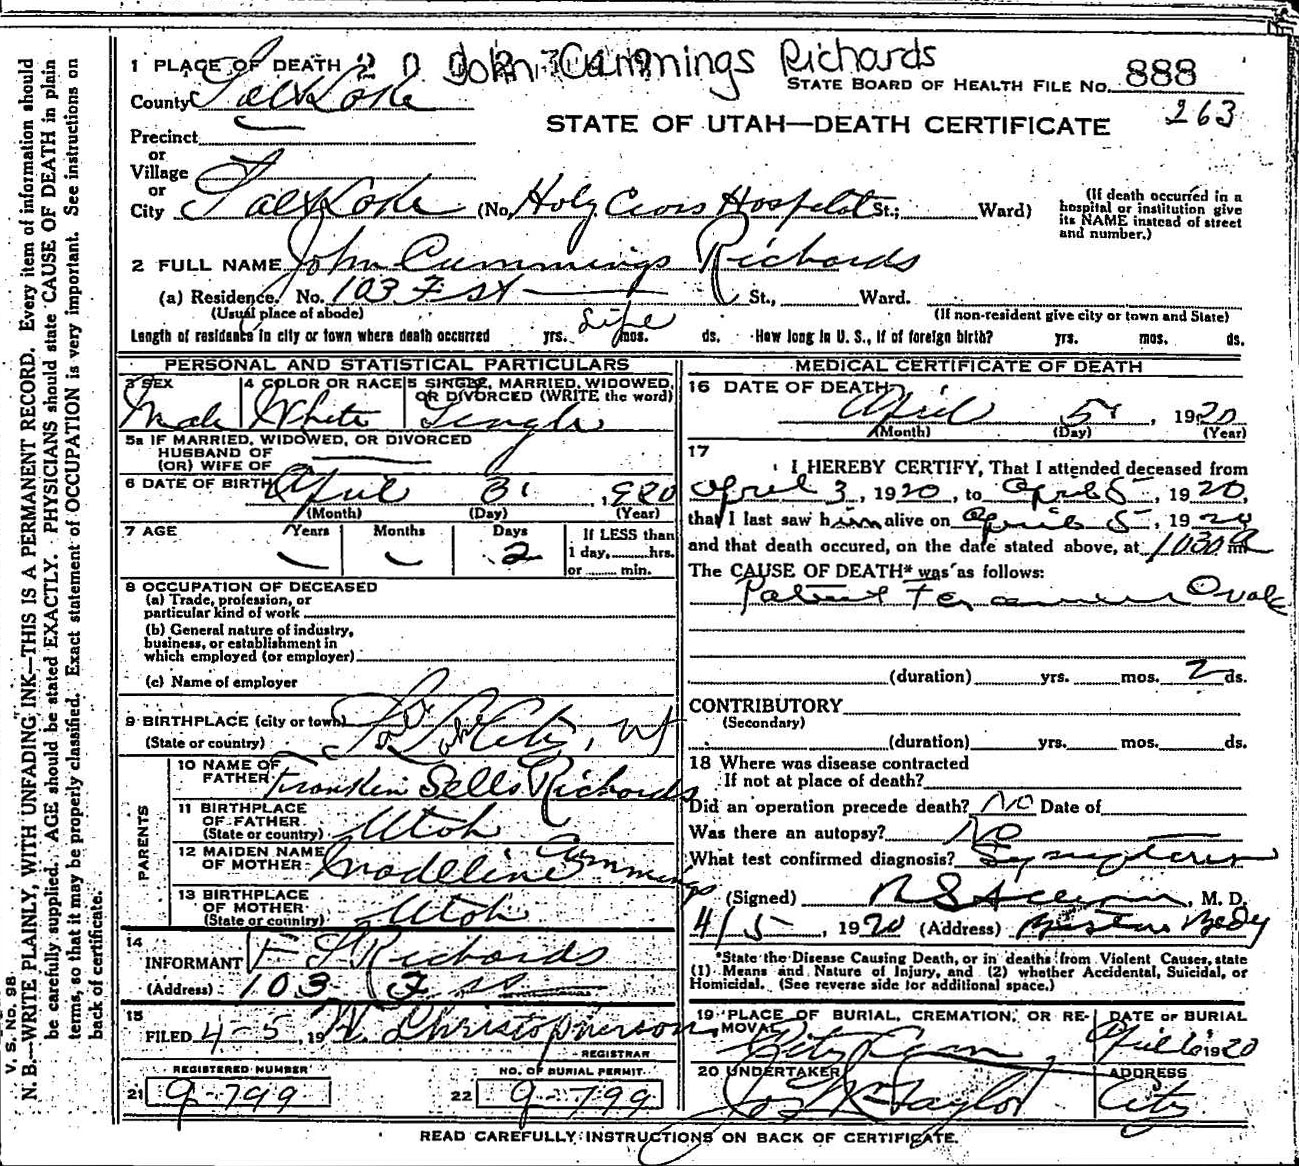 John Cummings Richards
1 PLACE OF DEATH 2 0
STATE BOARD OF HEALTH FILE No. 888
County Salt Lake
263
STATE OF UTAH—DEATH CERTIFICATE
Precinct
or
Village
or
City Salt Lake (No. Holy Cross Hospital St.; Ward)
(If death occurred in a hospital or institution give its NAME instead of street and number.)
2 FULL NAME John Cummings Richards
(a) Residence. No. 103 F St St., Ward.
(Usual place of abode) (If non-resident give city or town and State)
Length of residence in city or town where death occurred yrs. Life mos. ds. How long in U. S., if of foreign birth? yrs. mos. ds.
PERSONAL AND STATISTICAL PARTICULARS
3 SEX Male
4 COLOR OR RACE White
5 SINGLE, MARRIED, WIDOWED, OR DIVORCED (WRITE the word) Single
5a IF MARRIED, WIDOWED, OR DIVORCED
HUSBAND OF
(OR) WIFE OF
6 DATE OF BIRTH April 3, 1920
(Month) (Day) (Year)
7 AGE Years Months Days 2
If LESS than
1 day, hrs.
or min.
8 OCCUPATION OF DECEASED
(a) Trade, profession, or
particular kind of work
(b) General nature of industry,
business, or establishment in
which employed (or employer)
(c) Name of employer
9 BIRTHPLACE (city or town) Salt Lake City, Ut
(State or country)
PARENTS
10 NAME OF FATHER Franklin Sells Richards
11 BIRTHPLACE OF FATHER (State or country) Utah
12 MAIDEN NAME OF MOTHER Madeline Cummings
13 BIRTHPLACE OF MOTHER (State or country) Utah
14
INFORMANT F S Richards
(Address) 103 F St
15
FILED 4-5, 19 W. Christopherson
REGISTRAR
REGISTERED NUMBER
21 9-799
NO. OF BURIAL PERMIT
22 9-799
MEDICAL CERTIFICATE OF DEATH
16 DATE OF DEATH April 5, 1920
(Month) (Day) (Year)
17
I HEREBY CERTIFY, That I attended deceased from
April 3, 1920, to April 5, 1920,
that I last saw him alive on April 5, 1920
and that death occured, on the date stated above, at 1030 a m
The CAUSE OF DEATH* was as follows:
Patent Foramen Ovale
(duration) yrs. mos. 2 ds.
CONTRIBUTORY
(Secondary)
(duration) yrs. mos. ds.
18 Where was disease contracted
If not at place of death?
Did an operation precede death? No Date of
Was there an autopsy? No
What test confirmed diagnosis? Symptoms
(Signed) , M. D.
4/5, 1920 (Address) Bldg
*State the Disease Causing Death, or in deaths from Violent Causes, state
(1) Means and Nature of Injury, and (2) whether Accidental, Suicidal, or
Homicidal. (See reverse side for additional space.)
19 PLACE OF BURIAL, CREMATION, OR REMOVAL City Cem
DATE OF BURIAL April 6, 1920
20 UNDERTAKER Jos Wm Taylor
ADDRESS City
READ CAREFULLY INSTRUCTIONS ON BACK OF CERTIFICATE.
V. S. No. 98
N. B.—WRITE PLAINLY, WITH UNFADING INK—THIS IS A PERMANENT RECORD. Every item of information should
be carefully supplied. AGE should be stated EXACTLY. PHYSICIANS should state CAUSE OF DEATH in plain
terms, so that it may be properly classified. Exact statement of OCCUPATION is very important. See instructions on
back of certificate.